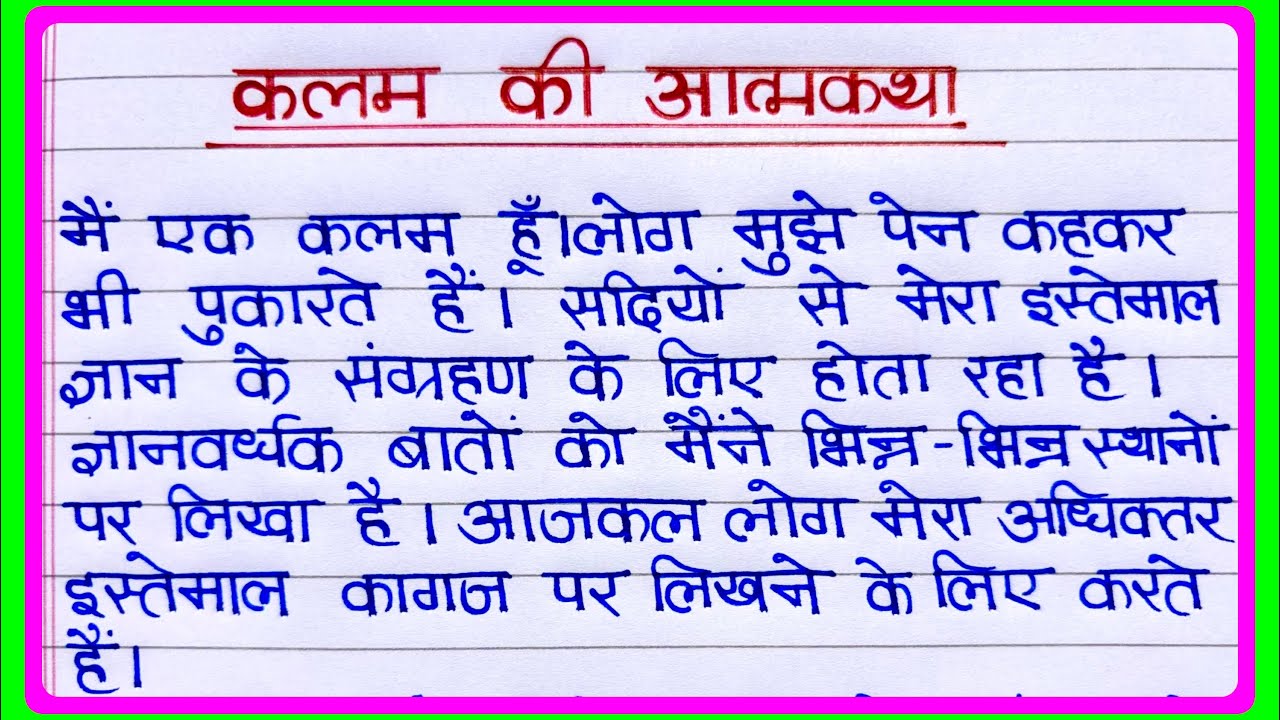 कलम की आत्मकथा
मैं एक कलम हूँ। लोग मुझे पेन कहकर
भी पुकारते हैं। सदियों से मेरा इस्तेमाल
ज्ञान के संग्रहण के लिए होता रहा है।
ज्ञानवर्धक बातों को मैंने भिन्न-भिन्न स्थानों
पर लिखा है। आजकल लोग मेरा अधिक्तर
इस्तेमाल कागज पर लिखने के लिए करते
हैं।